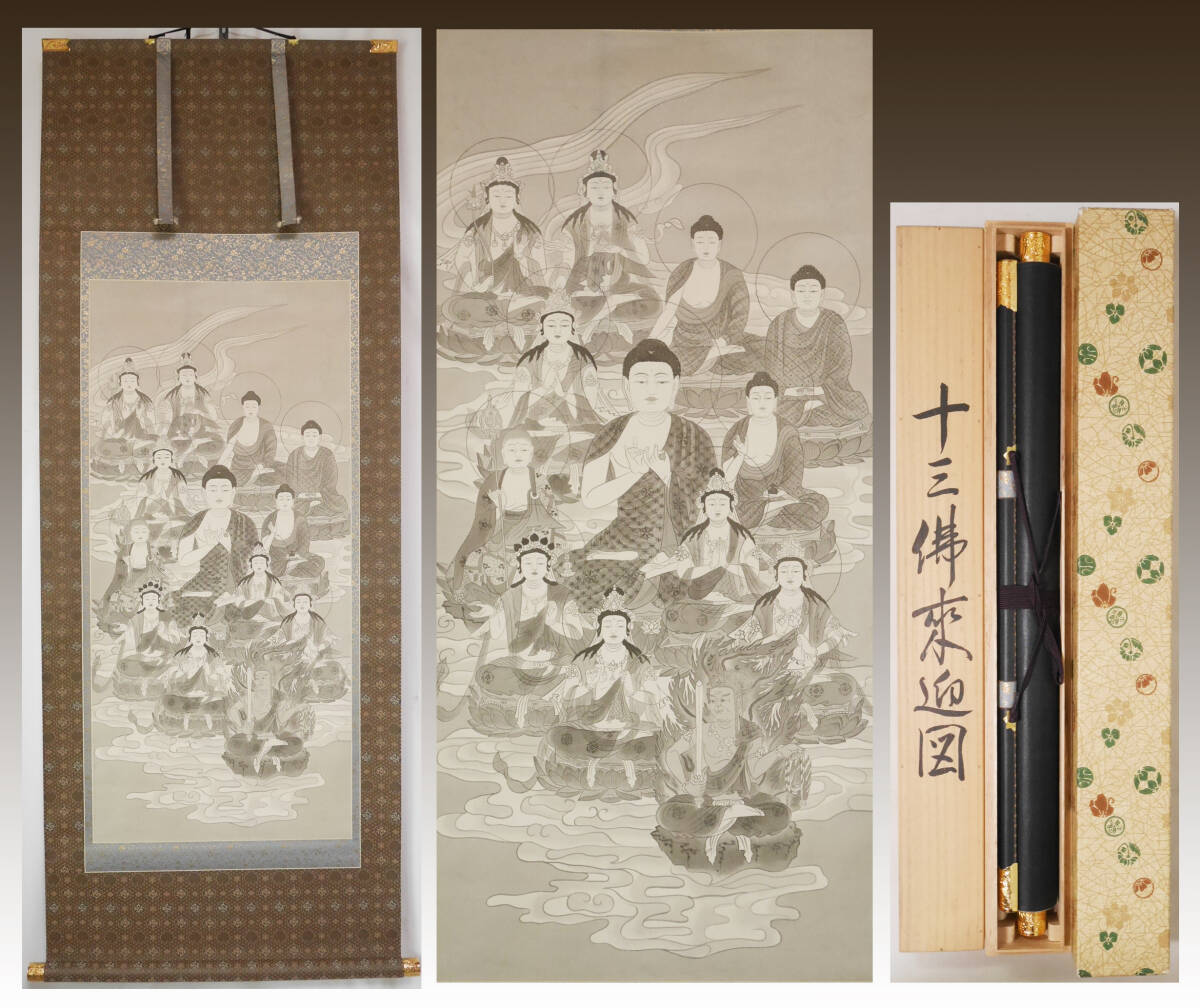 十三佛來迎図